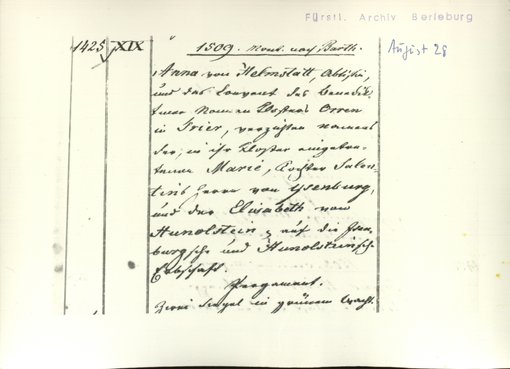 Fürstl. Archiv Berleburg
1425 XIX 1509. Mont. nach Barth. August 28
Anna von Helmstatt, Äbtissin,
und das Convent des Benedik-
tiner Nonnen Klosters Orren
in Trier, verzichten namens
der, in ihr Kloster eingetre-
tenen Marie, Tochter Salen-
tins Herrn von Ysenburg,
und der Elisabeth von
Hunolstein, auf die Isen-
burgsche und Hunolsteinsche
Erbschaft.
Pergament.
Zwei Siegel in grünem Wachs.